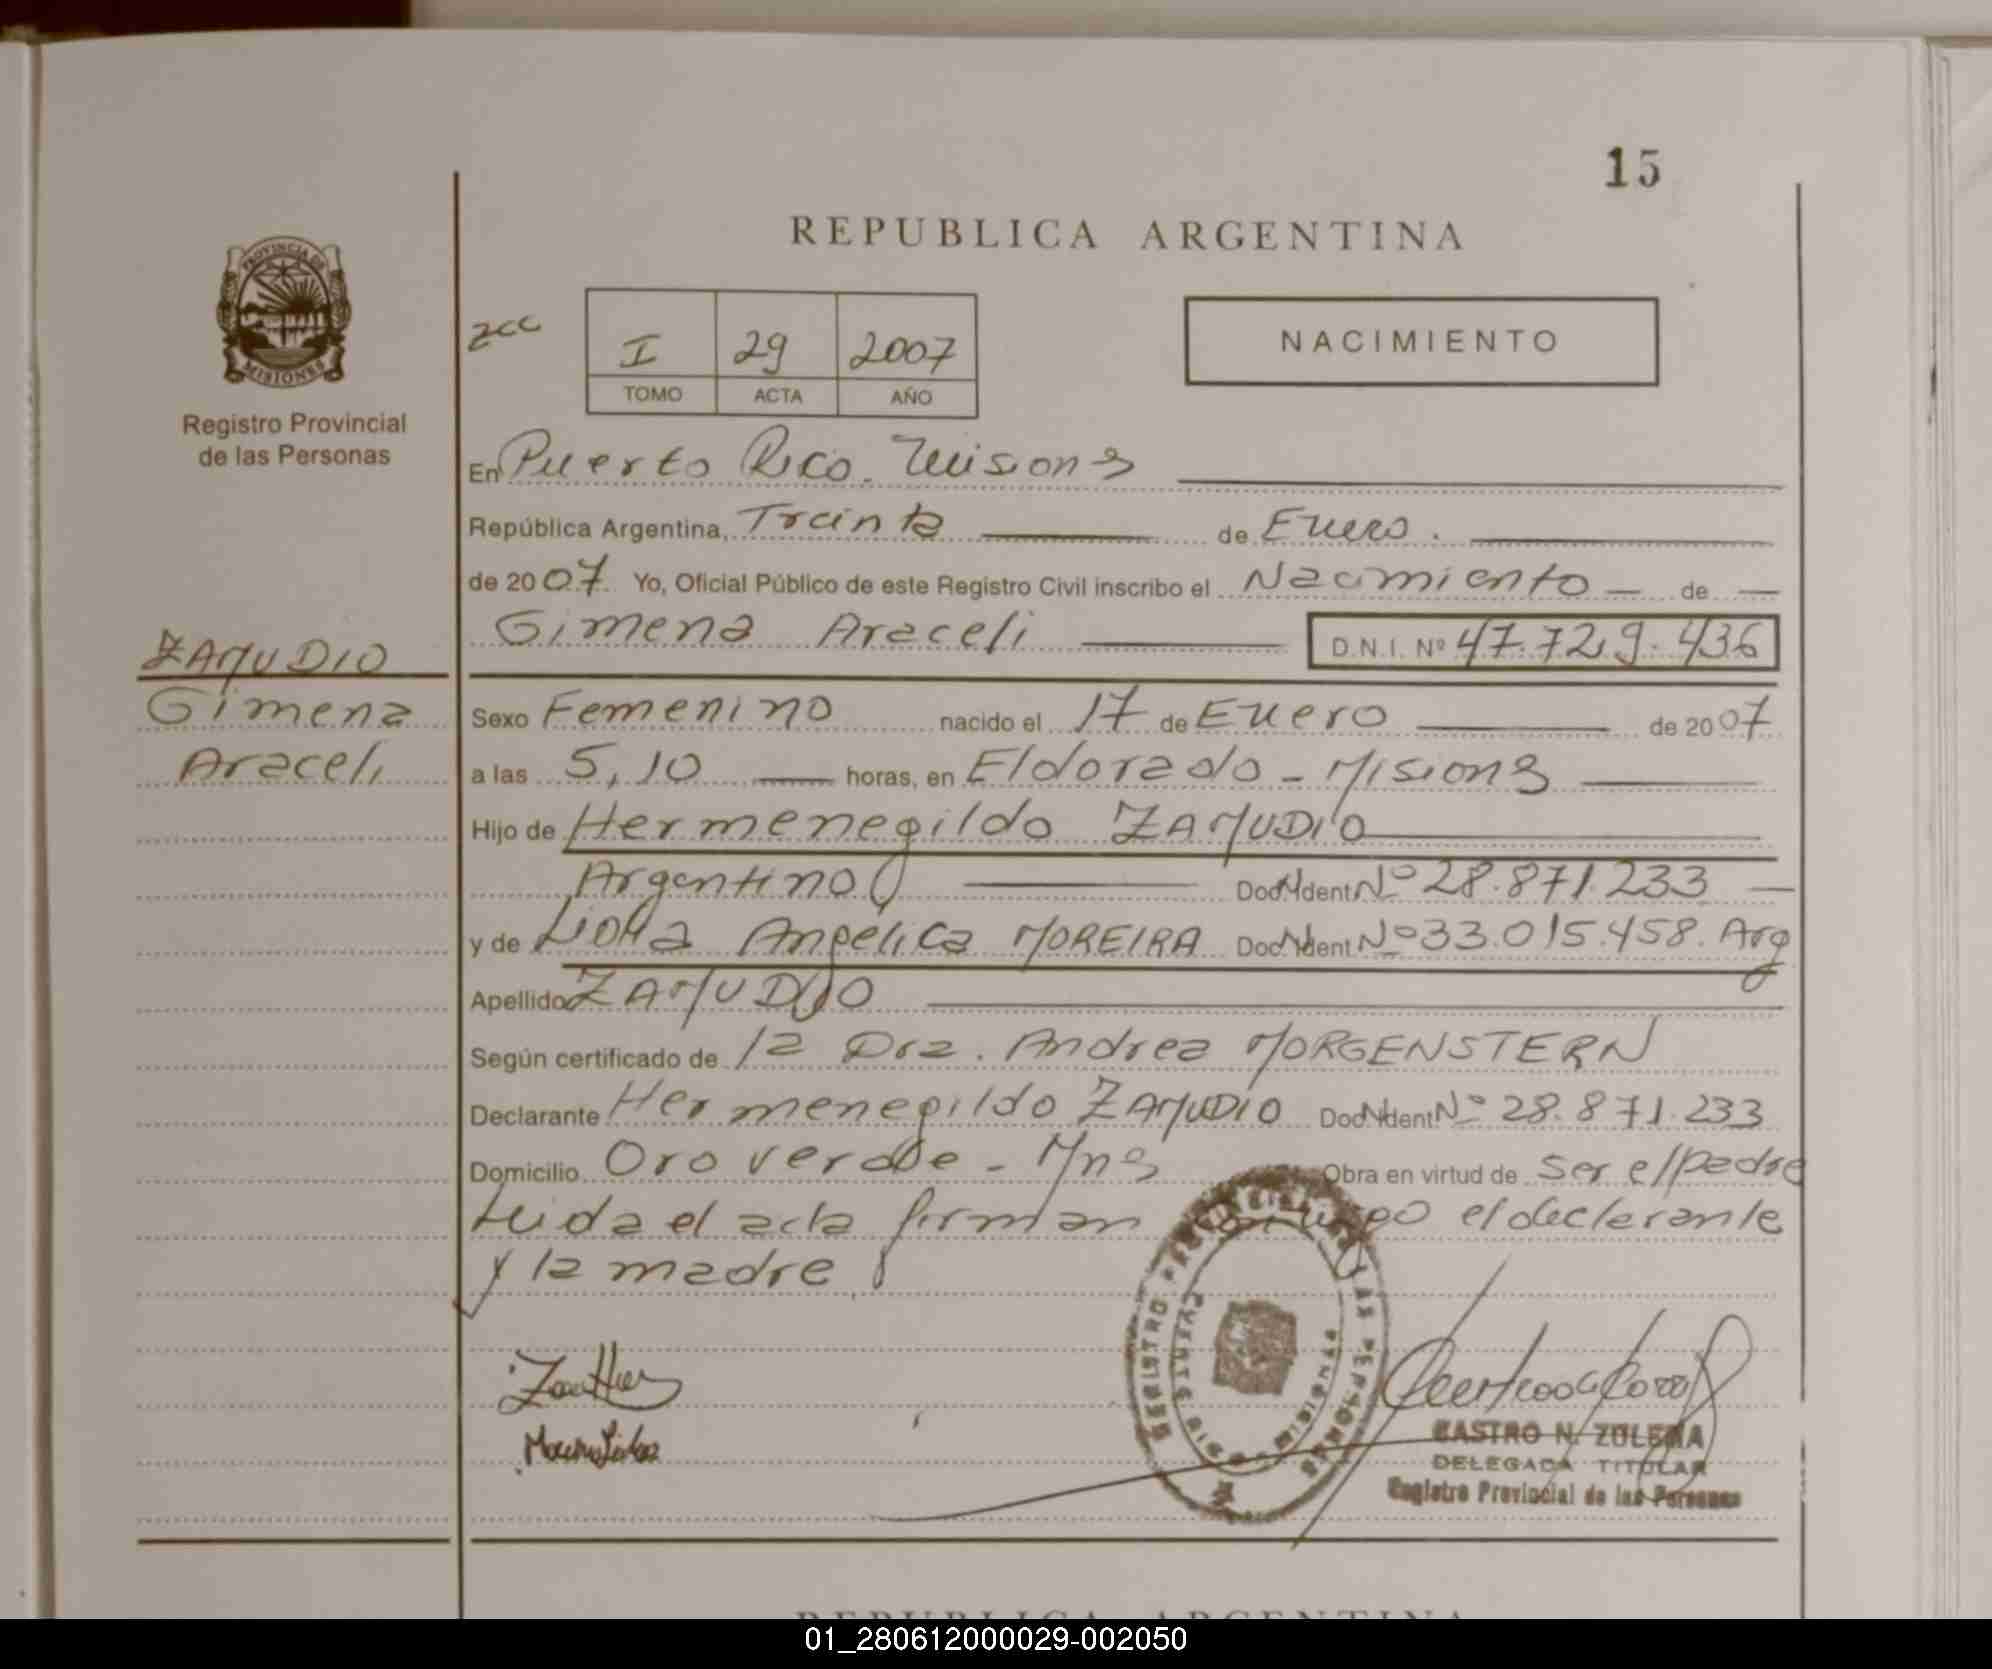 15
REPUBLICA ARGENTINA
PROVINCIA DE
MISIONES
Registro Provincial
de las Personas
zcc
I 29 2007
TOMO ACTA AÑO
NACIMIENTO
En Puerto Rico. Misiones
República Argentina, Treinta de Enero.
de 2007 Yo, Oficial Público de este Registro Civil inscribo el Nacimiento de
Gimena Araceli D.N.I. Nº 47.729.436
ZAMUDIO
Gimena
Araceli
Sexo Femenino nacido el 17 de Enero de 2007
a las 5,10 horas, en Eldorado - Misiones
Hijo de Hermenegildo ZAMUDIO
Argentino Doc. Ident. Nº 28.871.233
y de Angelica MOREIRA Doc. Ident. Nº 33.015.458. Arg
Apellido ZAMUDIO
Según certificado de la Dra. Andrea MORGENSTERN
Declarante Hermenegildo ZAMUDIO Doc. Ident. Nº 28.871.233
Domicilio Oro verde - Mnes Obra en virtud de ser el padre
Leida el acta firman conmigo el declarante
y la madre
REGISTRO PROVINCIAL DE LAS PERSONAS
CASTRO N. ZULEMA
DELEGADA TITULAR
Registro Provincial de las Personas
REPUBLICA ARGENTINA
01_280612000029-002050